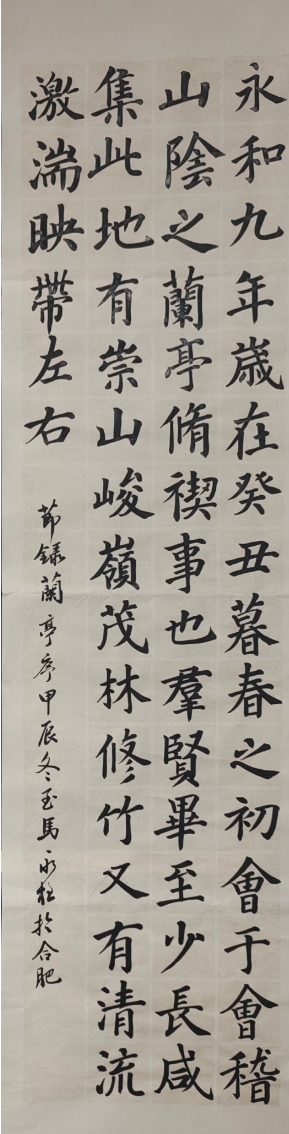 永和九年歲在癸丑暮春之初會于會稽
山陰之蘭亭脩禊事也羣賢畢至少長咸
集此地有崇山峻嶺茂林修竹又有清流
激湍映帶左右
節錄蘭亭序甲辰冬至馬永於合肥